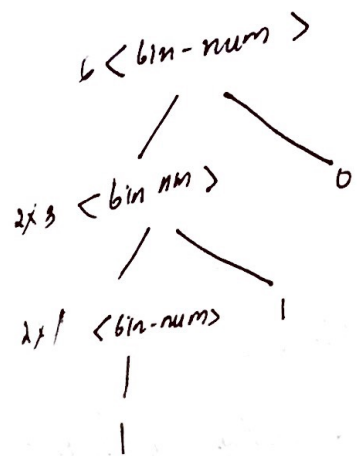 6 <bin-num>
0
2x3 <bin nm>
1
2x1 <bin-num>
1